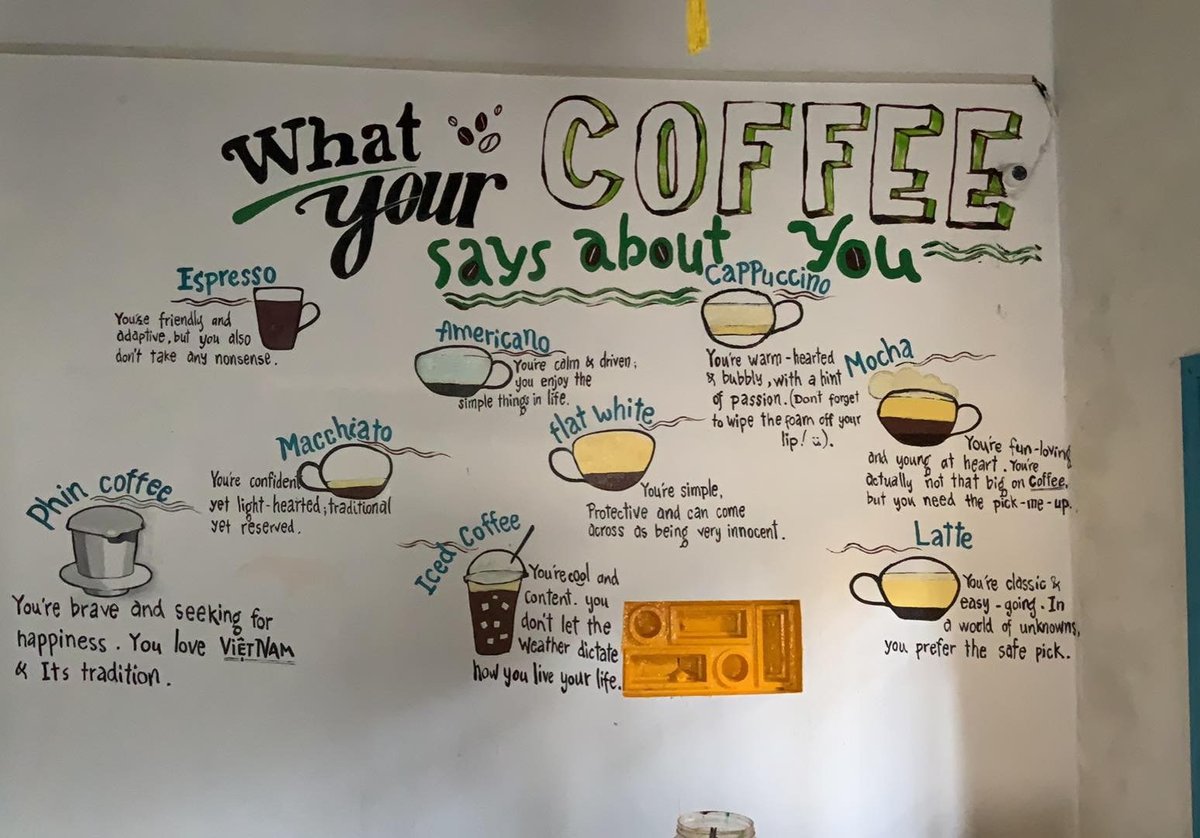 What
your
COFFEE
says about You
Espresso
You're friendly and
adaptive, but you also
don't take any nonsense.
Americano
You're calm & driven;
you enjoy the
simple things in life.
Cappuccino
You're warm-hearted
& bubbly, with a hint
of passion. (Dont forget
to wipe the foam off your
lip! ü).
Mocha
You're fun-loving
and young at heart. You're
actually not that big on Coffee,
but you need the pick-me-up.
Macchiato
You're confident
yet light-hearted; traditional
yet reserved.
flat white
You're simple,
Protective and can come
across as being very innocent.
Phin coffee
You're brave and seeking for
happiness. You love VIỆTNAM
& Its tradition.
Iced Coffee
You're cool and
content. you
don't let the
Weather dictate
how you live your life.
Latte
You're classic &
easy-going. In
a world of unknowns,
you prefer the safe pick.